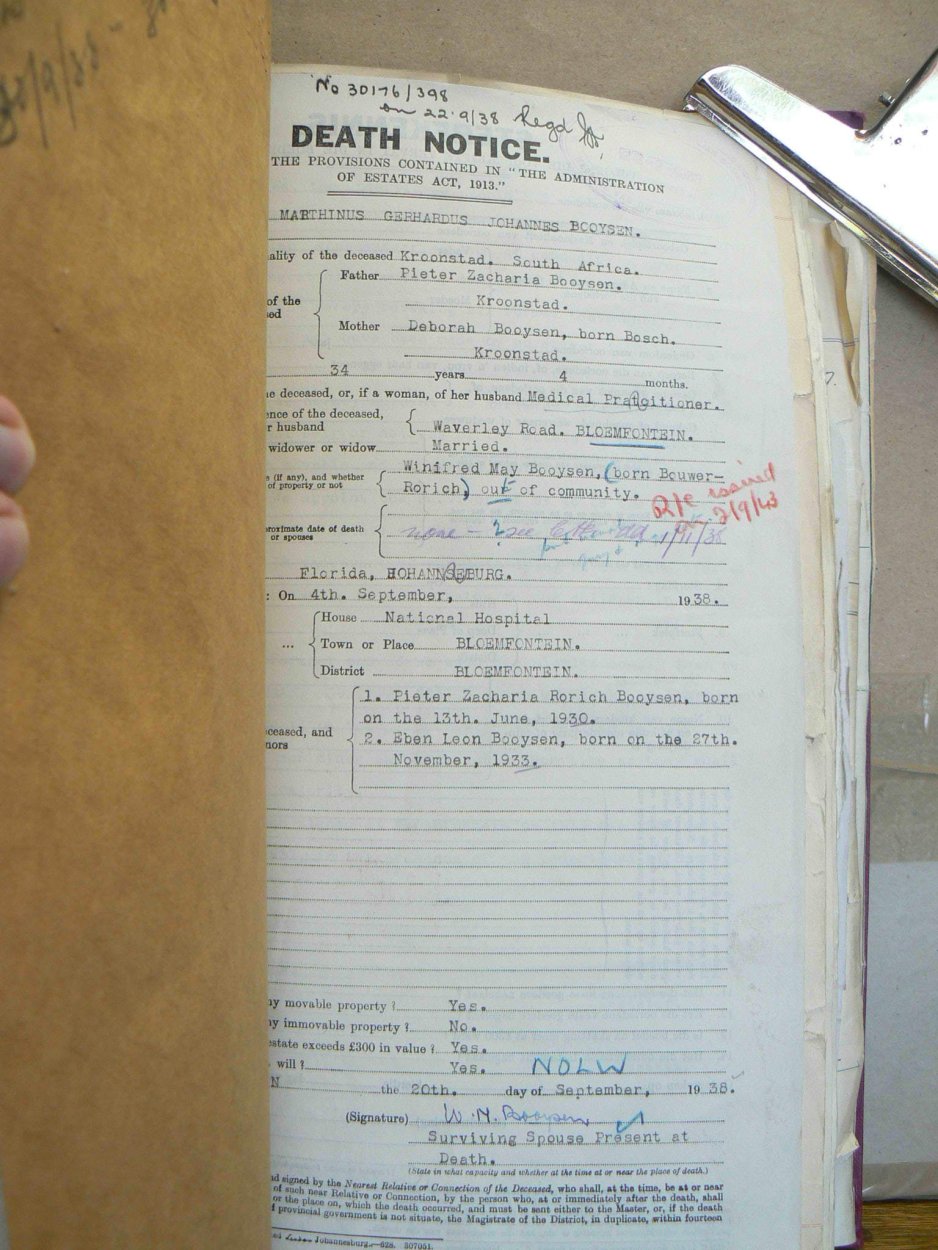 No 30176/398
on 22.9/38 Regd
DEATH NOTICE.
THE PROVISIONS CONTAINED IN "THE ADMINISTRATION
OF ESTATES ACT, 1913."
MARTHINUS GERHARDUS JOHANNES BOOYSEN.
ality of the deceased Kroonstad. South Africa.
Father Pieter Zacharia Booysen.
of the Kroonstad.
ed
Mother Deborah Booysen, born Bosch.
Kroonstad.
34 years 4 months.
e deceased, or, if a woman, of her husband Medical Practitioner.
ence of the deceased,
r husband Waverley Road. BLOEMFONTEIN.
widower or widow Married.
e (if any), and whether Winifred May Booysen, (born Bouwer-
of property or not Rorich) out of community.
2/9/43
roximate date of death none - see
or spouses
Florida, HOHANNSEBURG.
: On 4th. September, 1938.
House National Hospital
... Town or Place BLOEMFONTEIN.
District BLOEMFONTEIN.
1. Pieter Zacharia Rorich Booysen, born
on the 13th. June, 1930.
eceased, and 2. Eben Leon Booysen, born on the 27th.
nors November, 1933.
7.
ny movable property ? Yes.
ny immovable property ? No.
estate exceeds £300 in value ? Yes.
will ? Yes. NOLW
N the 20th. day of September, 1938.
(Signature) W. M. Booysen
Surviving Spouse Present at
Death.
(State in what capacity and whether at the time at or near the place of death.)
nd signed by the Nearest Relative or Connection of the Deceased, who shall, at the time, be at or near
of such near Relative or Connection, by the person who, at or immediately after the death, shall
or the place on, which the death occurred, and must be sent either to the Master, or, if the death
f provincial government is not situate, the Magistrate of the District, in duplicate, within fourteen
Johannesburg.—628. 307051.